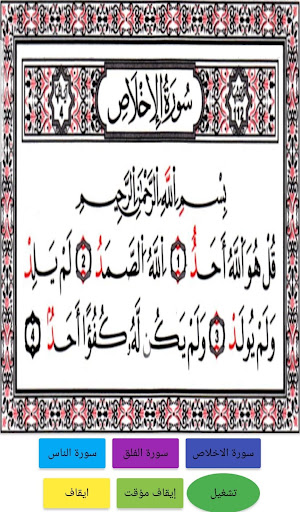 112 سُورَةُ الإِخْلَاصِ 4
بِسْمِ اللَّهِ الرَّحْمَٰنِ الرَّحِيمِ
قُلْ هُوَ اللَّهُ أَحَدٌ 1 اللَّهُ الصَّمَدُ 2 لَمْ يَلِدْ
وَلَمْ يُولَدْ 3 وَلَمْ يَكُن لَّهُ كُفُوًا أَحَدٌ 4
سورة الاخلاص سورة الفلق سورة الناس
تشغيل إيقاف مؤقت ايقاف